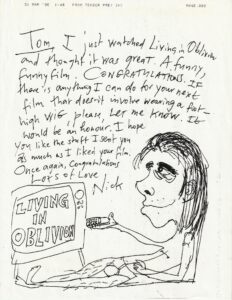 Tom, I just watched Living in Oblivion
and thought it was great. A funny,
funny film. CONGRATULATIONS. If
there is anything I can do for your next
film that doesn't involve wearing a foot
high WIG please, let me know. It
would be an honour. I hope
you like the stuff I sent you
as much as I liked your film
Once again, congratulations
Lots of Love
Nick
LIVING
IN
OBLIVION